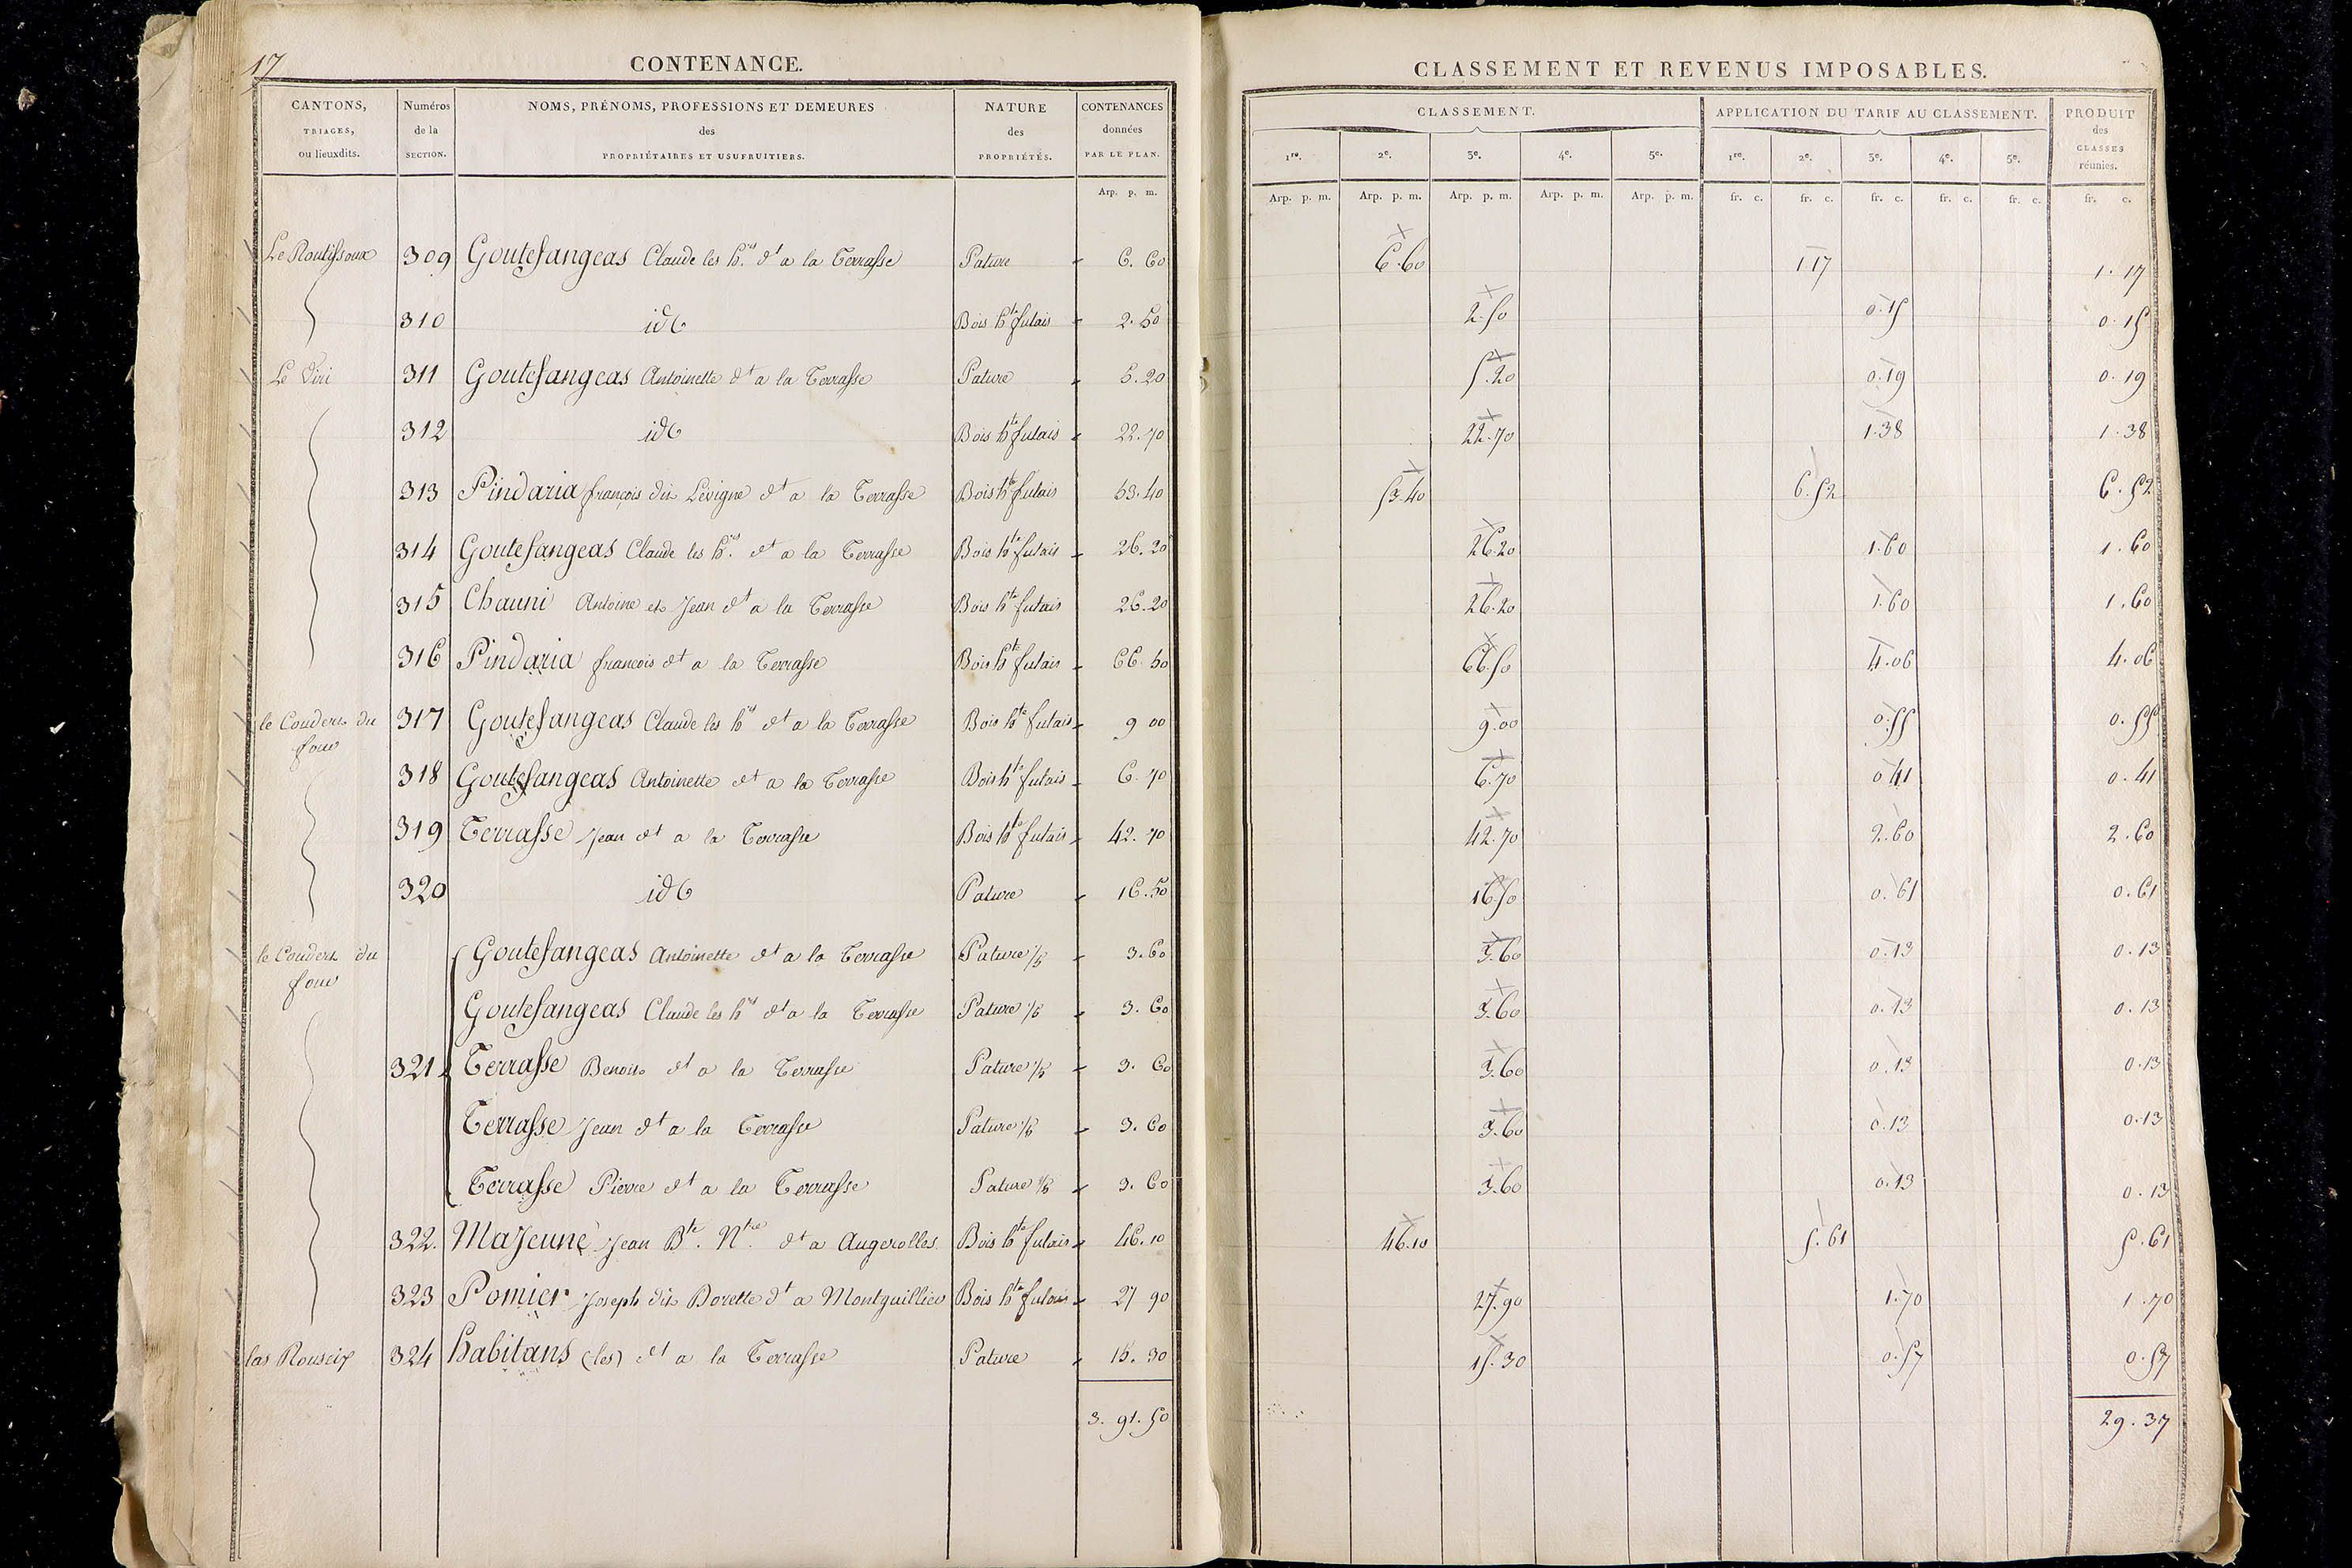 17
CONTENANCE.
CANTONS, TRIAGES, ou lieuxdits. | Numéros de la SECTION. | NOMS, PRÉNOMS, PROFESSIONS ET DEMEURES des PROPRIÉTAIRES ET USUFRUITIERS. | NATURE des PROPRIÉTÉS. | CONTENANCES données PAR LE PLAN.
Arp. p. m.
309 Goutefangeas Claude les h.rs dt a la Terrasse Pature 6. 60
310 id Bois hte futais 2. 50
Le Viri 311 Goutefangeas Antoinette dt a la Terrasse Pature 5. 20
312 id Bois hte futais 22. 70
313 Pindaria françois dit Lévigne dt a la Terrasse Bois hte futais 53. 40
314 Goutefangeas Claude les h.rs dt a la Terrasse Bois hte futais 26. 20
315 Chauni Antoine et Jean dt a la Terrasse Bois hte futais 26. 20
316 Pindaria francois dt a la Terrasse Bois hte futais 66. 50
le Couderc du four 317 Goutefangeas Claude les hrs dt a la Terrasse Bois hte futais 9 00
318 Goutefangeas Antoinette dt a la Terrasse Bois hte futais 6. 70
319 Terrasse Jean dt a la Terrasse Bois hte futais 42. 70
320 id Pature 16. 50
le Couderc du four Goutefangeas Antoinette dt a la Terrasse Pature 1/5 3. 60
Goutefangeas Claude les hrs dt a la Terrasse Pature 1/5 3. 60
321 Terrasse Benoit dt a la Terrasse Pature 1/5 3. 60
Terrasse Jean dt a la Terrasse Pature 1/5 3. 60
Terrasse Pierre dt a la Terrasse Pature 1/5 3. 60
322. MaJeune Jean Bte. Ntre dt a Augerolles Bois hte futais 46. 10
323 Pomier Joseph dit Dorette dt a Bois hte futais 27 90
324 habitans (les) dt a la Terrasse Pature 15. 30
3. 91. 50
CLASSEMENT ET REVENUS IMPOSABLES.
CLASSEMENT. | APPLICATION DU TARIF AU CLASSEMENT. | PRODUIT des CLASSES réunies.
1re. 2e. 3e. 4e. 5e. 1re. 2e. 3e. 4e. 5e.
Arp. p. m. Arp. p. m. Arp. p. m. Arp. p. m. Arp. p. m. fr. c. fr. c. fr. c. fr. c. fr. c. fr. c.
6.60 1.17 1. 17
2.50 0.15 0. 15
5.20 0.19 0. 19
22.70 1.38 1. 38
53.40 6.52 6. 52
26.20 1.60 1. 60
26.20 1.60 1. 60
66.50 4.06 4. 06
9.00 0.55 0. 55
6.70 0.41 0. 41
42.70 2.60 2. 60
16.50 0.61 0. 61
3.60 0.13 0. 13
3.60 0.13 0. 13
3.60 0.13 0. 13
3.60 0.13 0. 13
3.60 0.13 0. 13
46.10 5.61 5. 61
27.90 1.70 1. 70
15.30 0.57 0. 57
29. 37